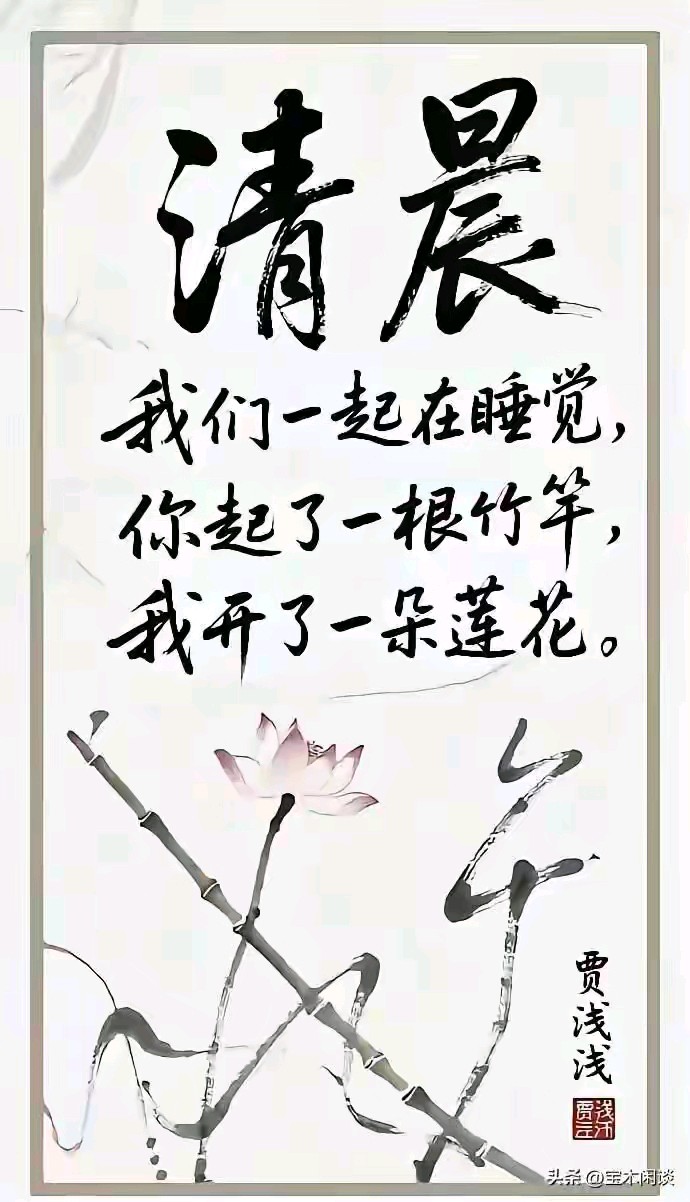 清晨
我们一起在睡觉，
你起了一根竹竿，
我开了一朵莲花。
贾浅浅
头条 @宝木闲谈